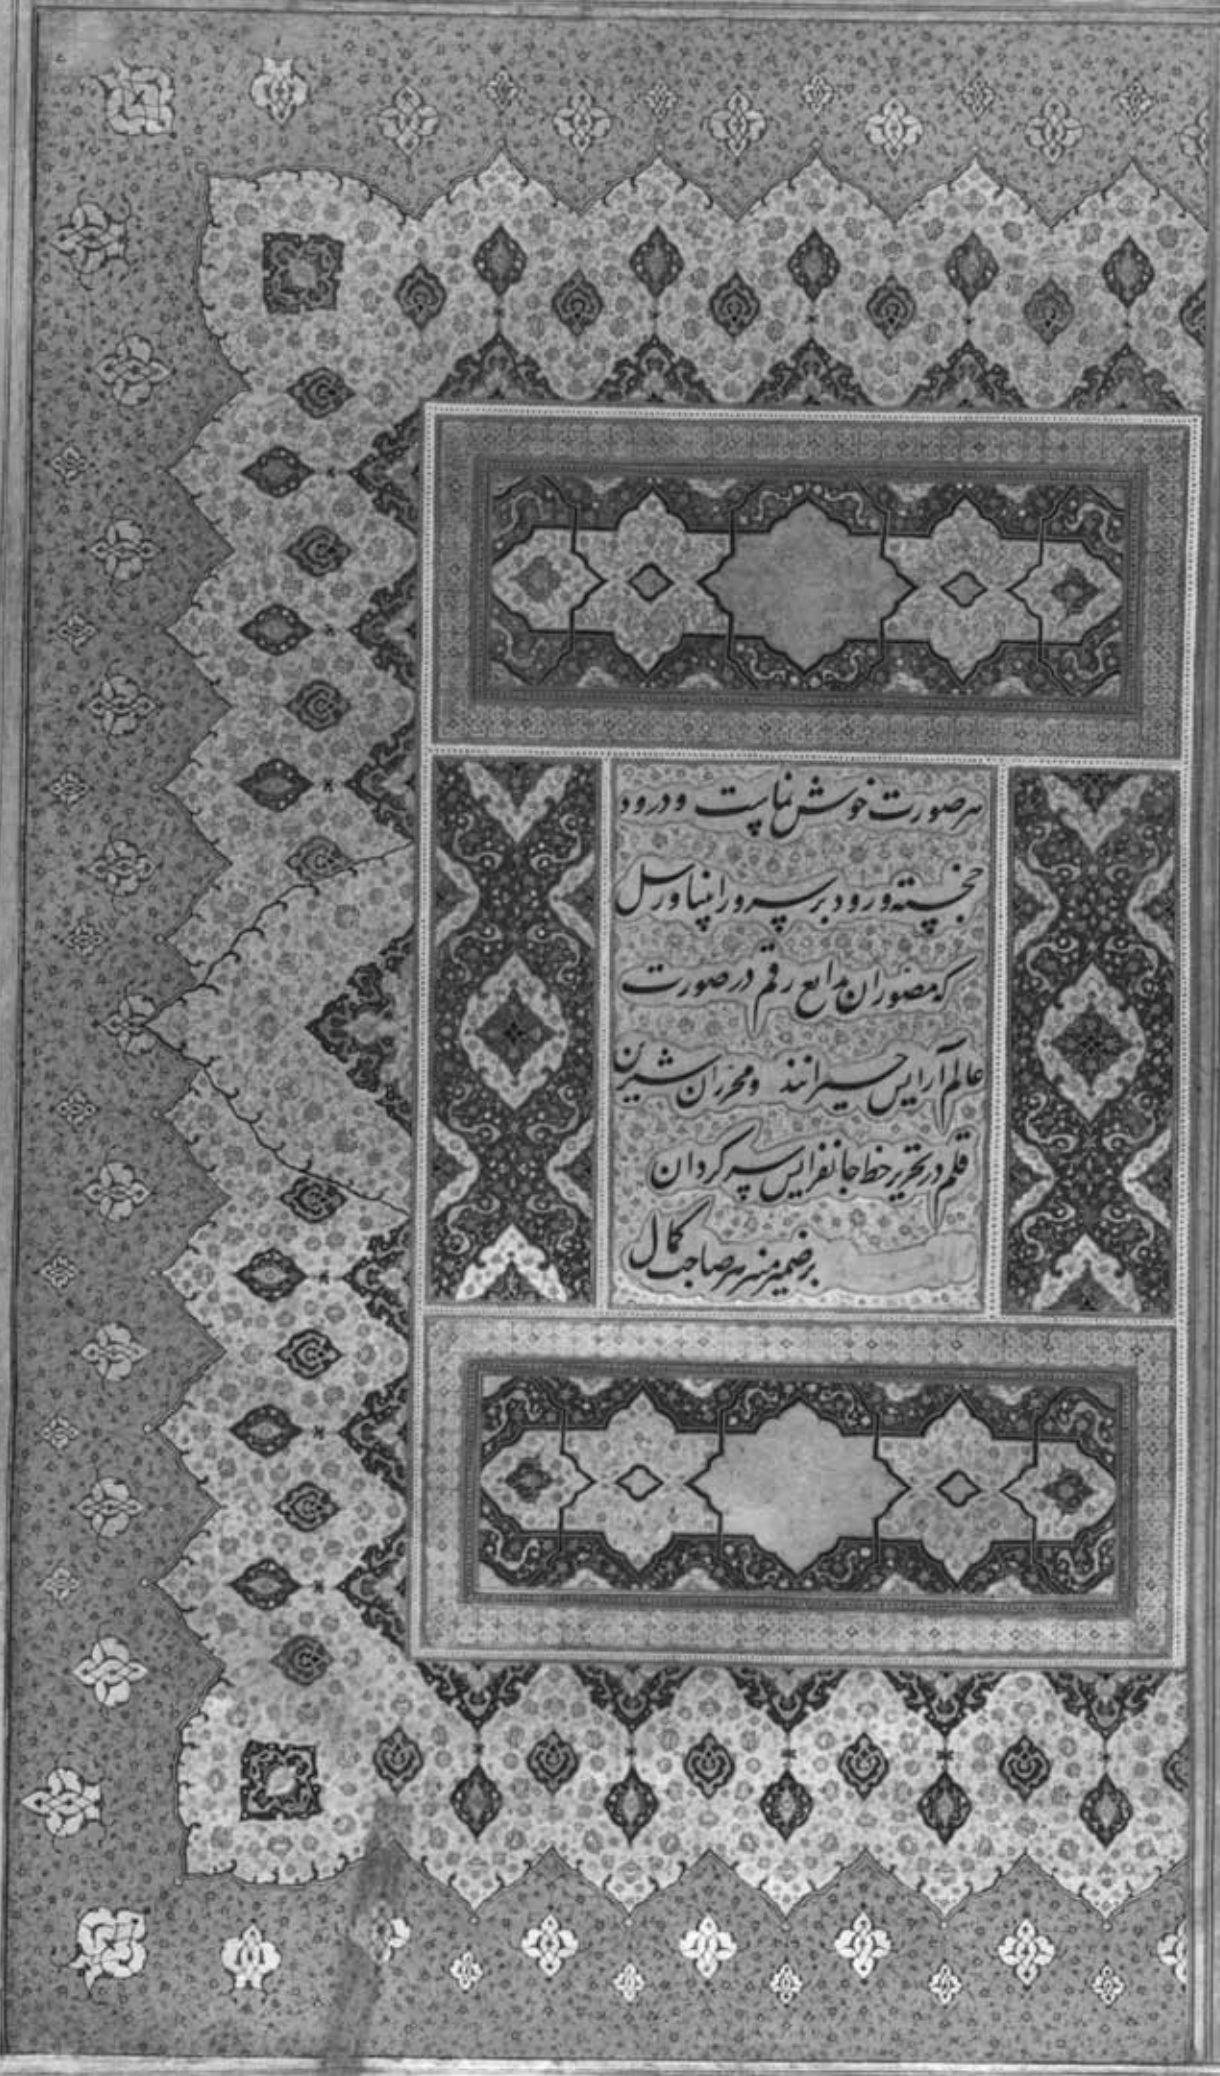 هر صورت خوش نماست و درود
خجسته ورود بر سرور انبیا و رسل
که مصوران بدایع رقم در صورت
عالم آرایش حیرانند و محرران شیرین
قلم در تحریر خط جانفزایش سرگردان
بر ضمیر منیر هر صاحب کمال